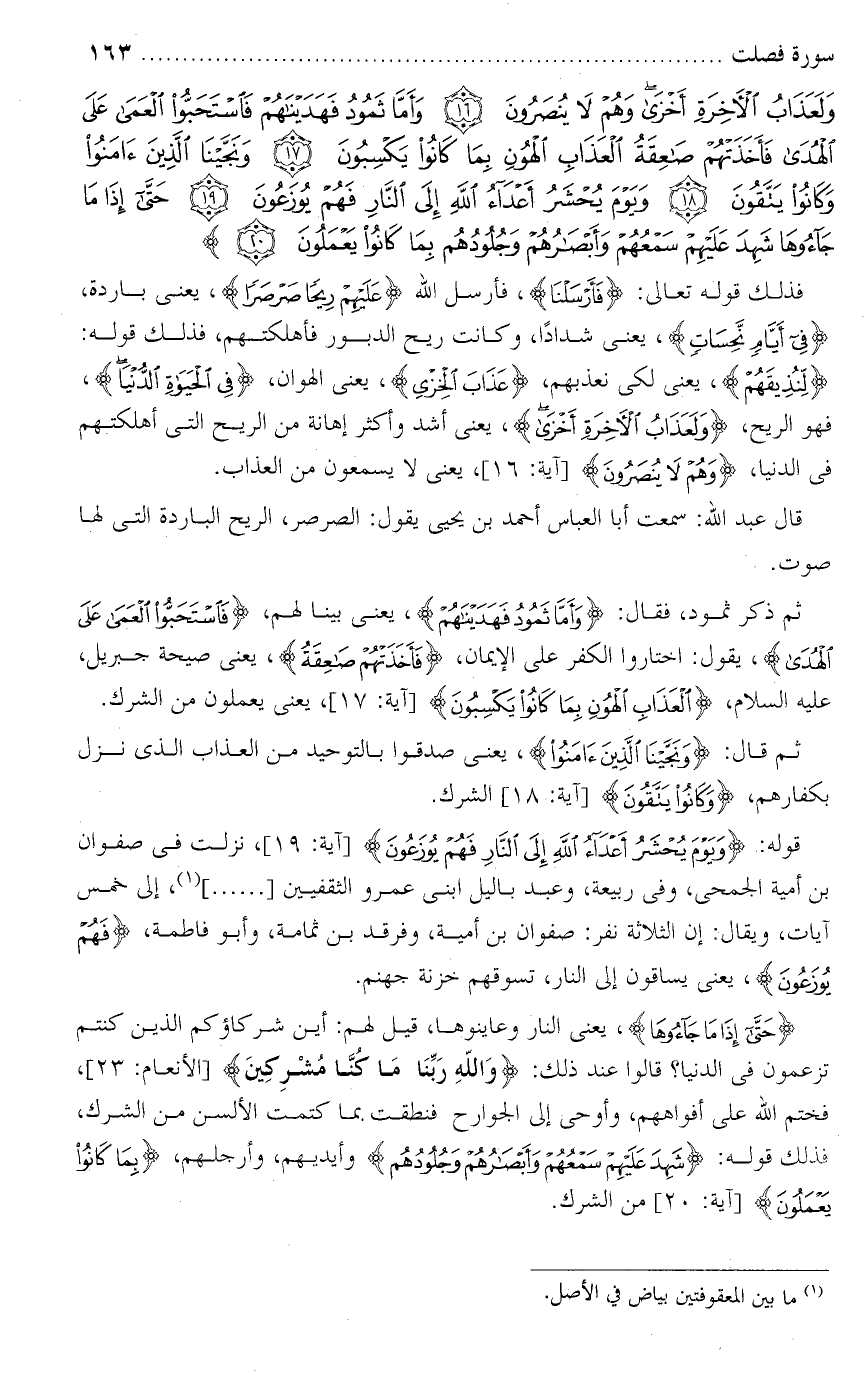 سورة فصلت ........................................................................ ١٦٣
وَلَعَذَابُ ٱلْأَخِرَةِ أَخْزَىٰۖ وَهُمْ لَا يُنصَرُونَ ﴿١٦﴾ وَأَمَّا ثَمُودُ فَهَدَيْنَٰهُمْ فَٱسْتَحَبُّوا۟ ٱلْعَمَىٰ عَلَى
ٱلْهُدَىٰ فَأَخَذَتْهُمْ صَٰعِقَةُ ٱلْعَذَابِ ٱلْهُونِ بِمَا كَانُوا۟ يَكْسِبُونَ ﴿١٧﴾ وَنَجَّيْنَا ٱلَّذِينَ ءَامَنُوا۟
وَكَانُوا۟ يَتَّقُونَ ﴿١٨﴾ وَيَوْمَ يُحْشَرُ أَعْدَآءُ ٱللَّهِ إِلَى ٱلنَّارِ فَهُمْ يُوزَعُونَ ﴿١٩﴾ حَتَّىٰٓ إِذَا مَا
جَآءُوهَا شَهِدَ عَلَيْهِمْ سَمْعُهُمْ وَأَبْصَٰرُهُمْ وَجُلُودُهُم بِمَا كَانُوا۟ يَعْمَلُونَ ﴿٢٠﴾ ﴾
فذلك قوله تعالى: ﴿فَأَرْسَلْنَا﴾، فأرسل الله ﴿عَلَيْهِمْ رِيحًا صَرْصَرًا﴾، يعنى باردة،
﴿فِىٓ أَيَّامٍ نَّحِسَاتٍ﴾، يعنى شدادًا، وكانت ريح الدبور فأهلكتهم، فذلك قوله:
﴿لِّنُذِيقَهُمْ﴾، يعنى لكى نعذبهم، ﴿عَذَابَ ٱلْخِزْىِ﴾، يعنى الهوان، ﴿فِى ٱلْحَيَوٰةِ ٱلدُّنْيَاۖ﴾،
فهو الريح، ﴿وَلَعَذَابُ ٱلْأَخِرَةِ أَخْزَىٰۖ﴾، يعنى أشد وأكثر إهانة من الريح التى أهلكتهم
فى الدنيا، ﴿وَهُمْ لَا يُنصَرُونَ﴾ [آية: ١٦]، يعنى لا يسمعون من العذاب.
قال عبد الله: سمعت أبا العباس أحمد بن يحيى يقول: الصرصر، الريح الباردة التى لها
صوت.
ثم ذكر ثمود، فقال: ﴿وَأَمَّا ثَمُودُ فَهَدَيْنَٰهُمْ﴾، يعنى بينا لهم، ﴿فَٱسْتَحَبُّوا۟ ٱلْعَمَىٰ عَلَى
ٱلْهُدَىٰ﴾، يقول: اختاروا الكفر على الإيمان، ﴿فَأَخَذَتْهُمْ صَٰعِقَةُ﴾، يعنى صيحة جبريل،
عليه السلام، ﴿ٱلْعَذَابِ ٱلْهُونِ بِمَا كَانُوا۟ يَكْسِبُونَ﴾ [آية: ١٧]، يعنى يعملون من الشرك.
ثم قال: ﴿وَنَجَّيْنَا ٱلَّذِينَ ءَامَنُوا۟﴾، يعنى صدقوا بالتوحيد من العذاب الذى نزل
بكفارهم، ﴿وَكَانُوا۟ يَتَّقُونَ﴾ [آية: ١٨] الشرك.
قوله: ﴿وَيَوْمَ يُحْشَرُ أَعْدَآءُ ٱللَّهِ إِلَى ٱلنَّارِ فَهُمْ يُوزَعُونَ﴾ [آية: ١٩]، نزلت فى صفوان
بن أمية الجمحى، وفى ربيعة، وعبد باليل ابنى عمرو الثقفيين [......](١)، إلى خمس
آيات، ويقال: إن الثلاثة نفر: صفوان بن أمية، وفرقد بن ثمامة، وأبو فاطمة، ﴿فَهُمْ
يُوزَعُونَ﴾، يعنى يساقون إلى النار، تسوقهم خزنة جهنم.
﴿حَتَّىٰٓ إِذَا مَا جَآءُوهَا﴾، يعنى النار وعاينوها، قيل لهم: أين شركاؤكم الذين كنتم
تزعمون فى الدنيا؟ قالوا عند ذلك: ﴿وَاللهِ رَبِّنَا مَا كُنَّا مُشْرِكِينَ﴾ [الأنعام: ٢٣]،
فختم الله على أفواههم، وأوحى إلى الجوارح فنطقت بما كتمت الألسن من الشرك،
فذلك قوله: ﴿شَهِدَ عَلَيْهِمْ سَمْعُهُمْ وَأَبْصَٰرُهُمْ وَجُلُودُهُم﴾ وأيديهم، وأرجلهم، ﴿بِمَا كَانُوا۟
يَعْمَلُونَ﴾ [آية: ٢٠] من الشرك.
(١) ما بين المعقوفتين بياض في الأصل.